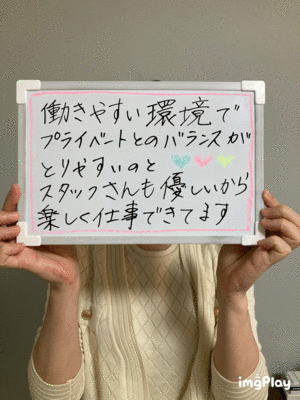 働きやすい環境で
プライベートとのバランスが
とりやすいのと
スタッフさんも優しいから
楽しく仕事できてます
imgPlay